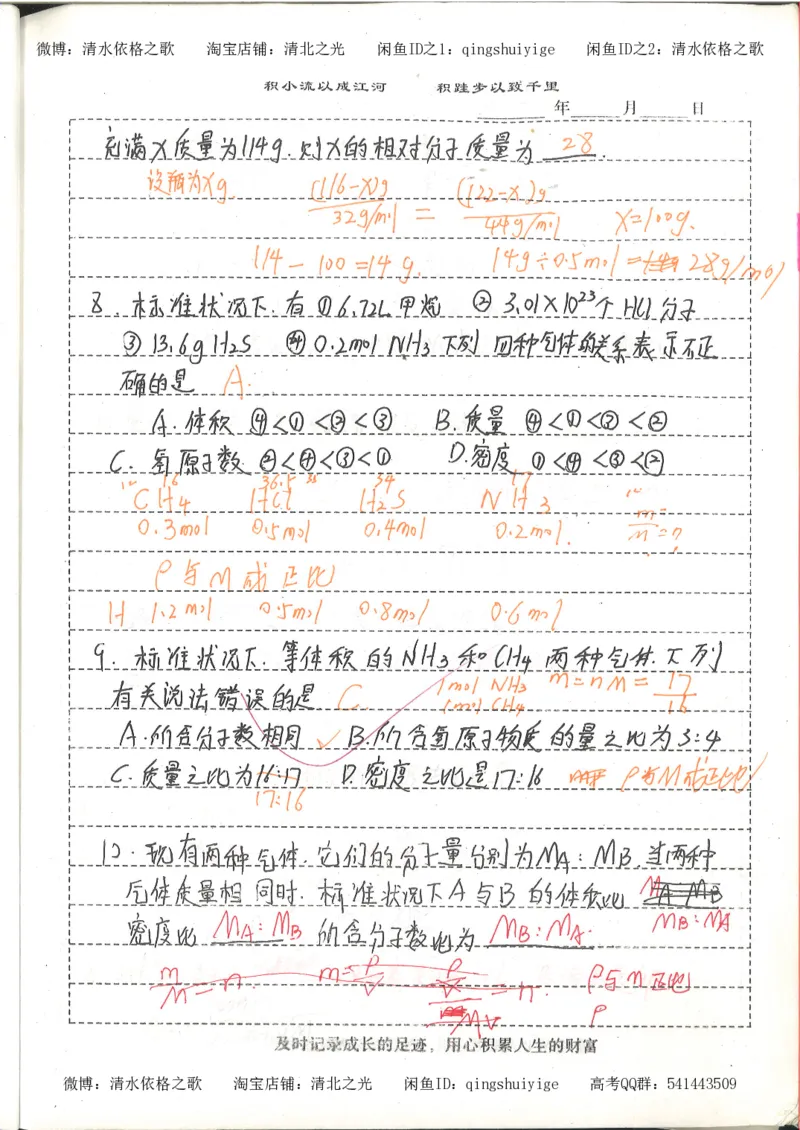 微博：清水依格之歌 淘宝店铺：清北之光 闲鱼ID之1：qingshuiyige 闲鱼ID之2：清水依格之歌
积小流以成江河 积跬步以致千里
年 月 日
充满X质量为114g.则X的相对分子质量为 28 .
设瓶为Xg. (116-X)g/32g/mol = (122-X)g/44g/mol X=100g.
114-100=14g. 14g÷0.5mol= 28g/mol
8. 标准状况下.有①6.72L甲烷 ②3.01X10²³个HCl分子
③13.6gH2S ④0.2molNH3下列四种气体的关系表示不正
确的是 A.
A.体积④<①<②<③ B.质量④<①<③<②
C.氢原子数②<④<③<① D.密度①<④<③<②
16 36.5 34 17
CH4 HCl H2S NH3 m/M=n
0.3mol 0.5mol 0.4mol 0.2mol.
ρ与M成正比
H 1.2mol 0.5mol 0.8mol 0.6mol
9. 标准状况下.等体积的NH3和CH4两种气体.下列
有关说法错误的是 C 1mol NH3 1mol CH4 m=nM=17/16
A.所含分子数相同 B.所含氢原子物质的量之比为3:4
C.质量之比为16:17 D.密度之比是17:16 ρ与M成正比
17:16
12.现有两种气体.它们的分子量分别为MA:MB.当两种
气体质量相同时.标准状况下A与B的体积比
MB:MA
密度比 MA:MB 所含分子数比为 MB:MA.
m/M=n =n. ρ与M正比
ρ
及时记录成长的足迹，用心积累人生的财富
微博：清水依格之歌 淘宝店铺：清北之光 闲鱼ID：qingshuiyige 高考QQ群：541443509